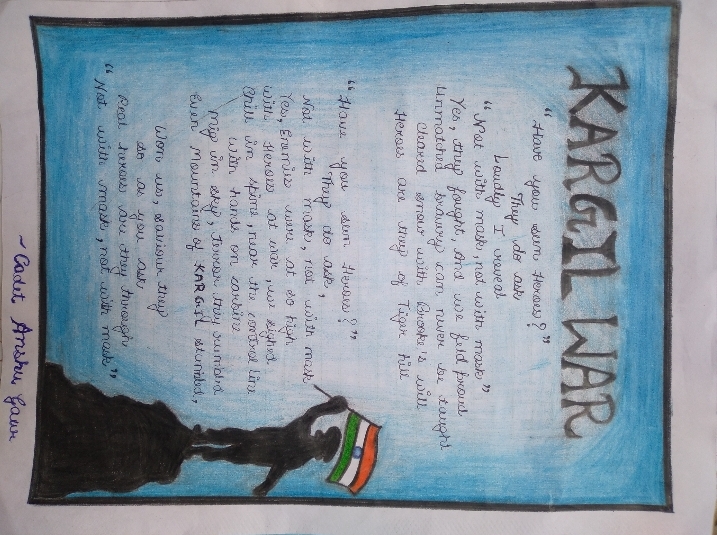 KARGIL WAR
“Have you seen Heroes?”
They do ask
Loudly I reveal
“Not with mask, not with mask”
Yes, they fought, And we feel proud
Unmatched bravery can never be taught
Chared snow with Bronke's will
Heroes are they of Tiger hill
“Have you seen Heroes?”
They do ask,
Not with mask, not with mask
Yes, Enemies were at so high
with Heroes at war, we sighed
Chill in spine, near the control line
With hands on carbine
Mig in sky, terror they
Even mountains of KARGIL
Won us, saviour they
do as you ask,
Real heroes are they through
“Not with mask, not with mask”
~ Cadet Anshu Gaur